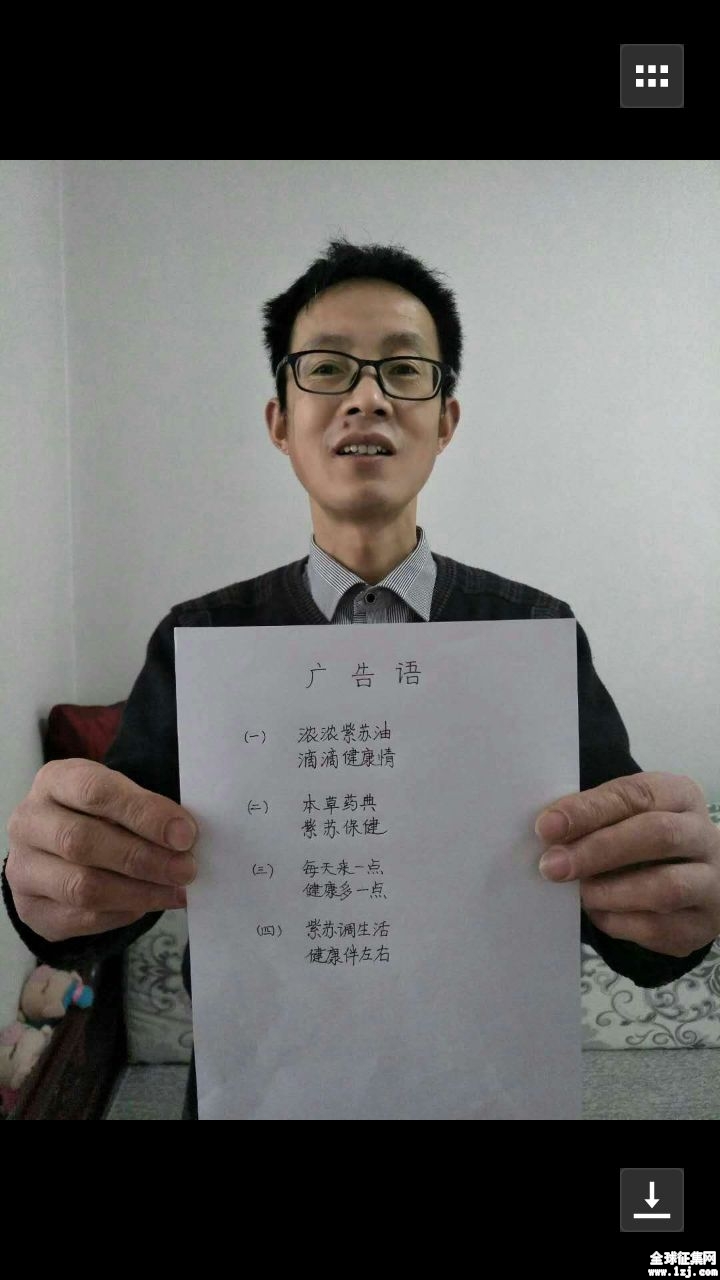 广告语
（一） 浓浓紫苏油
滴滴健康情
（二） 本草药典
紫苏保健
（三） 每天来一点
健康多一点
（四） 紫苏调生活
健康伴左右
全球征集网
www.1zj.com